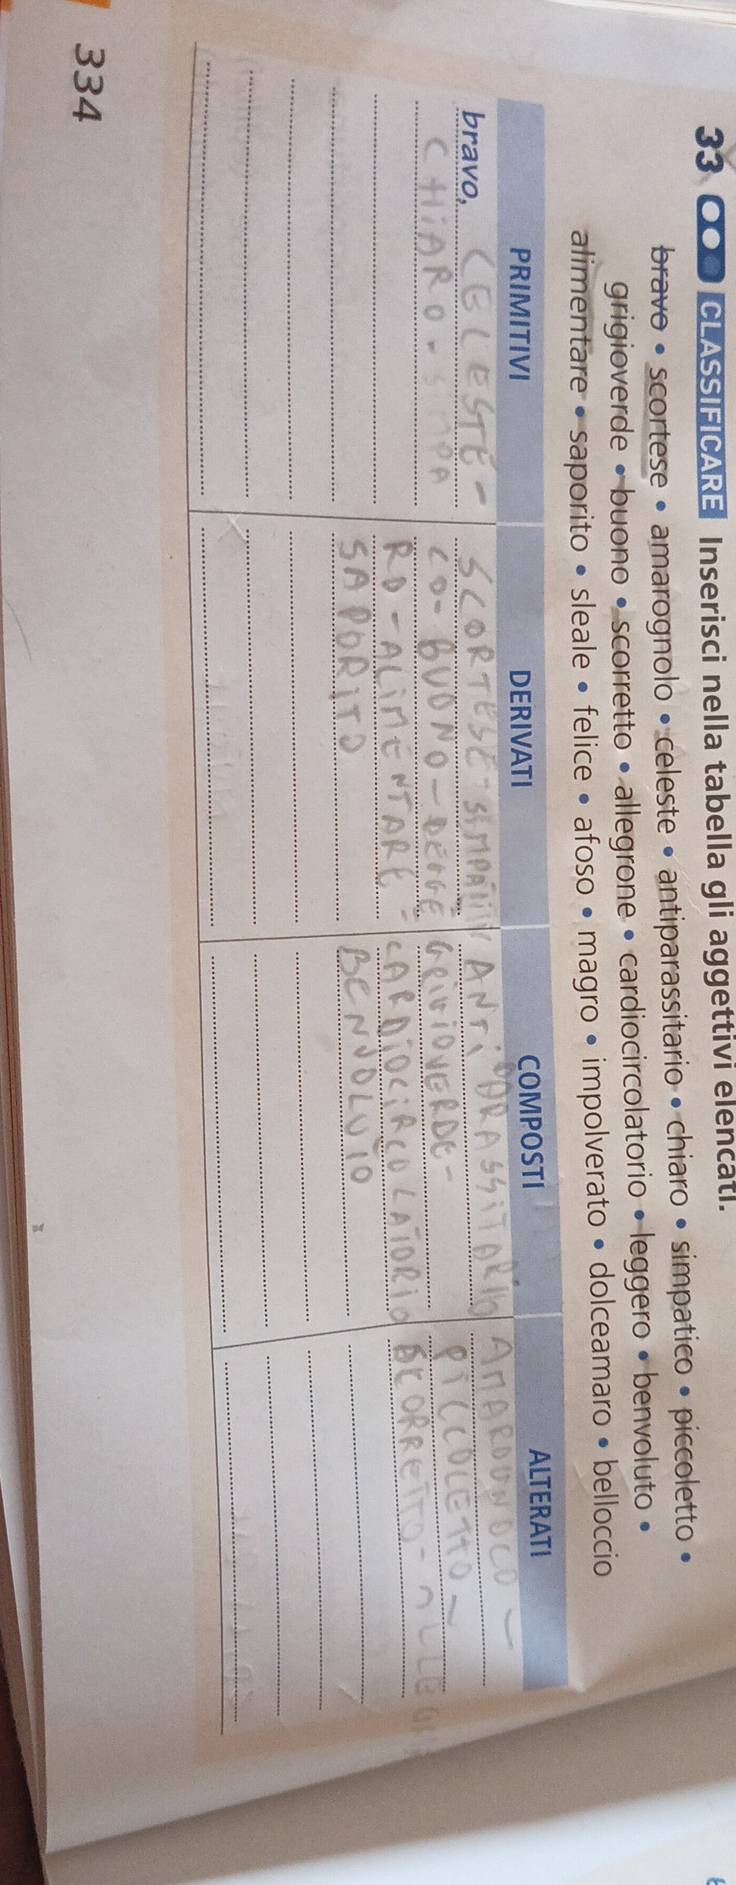 33 CLASSIFICARE Inserisci nella tabella gli aggettivi elencati.
bravo • scortese • amarognolo • celeste • antiparassitario • chiaro • simpatico • piccoletto •
grigioverde • buono • scorretto • allegrone • cardiocircolatorio • leggero • benvoluto •
alimentare • saporito • sleale • felice • afoso • magro • impolverato • dolceamaro • belloccio
PRIMITIVI DERIVATI COMPOSTI ALTERATI
bravo, CELESTE - SCORTESE - SIMPATI ANTIPARASSITARIO AMAROGNOLO -
CHIARO - CO - BUONO - GRIGIOVERDE - PICCOLETTO -
RO - ALIMENTARE - CARDIOCIRCOLATORIO SCORRETTO - ALLEGR
SAPORITO BENVOLUTO
334